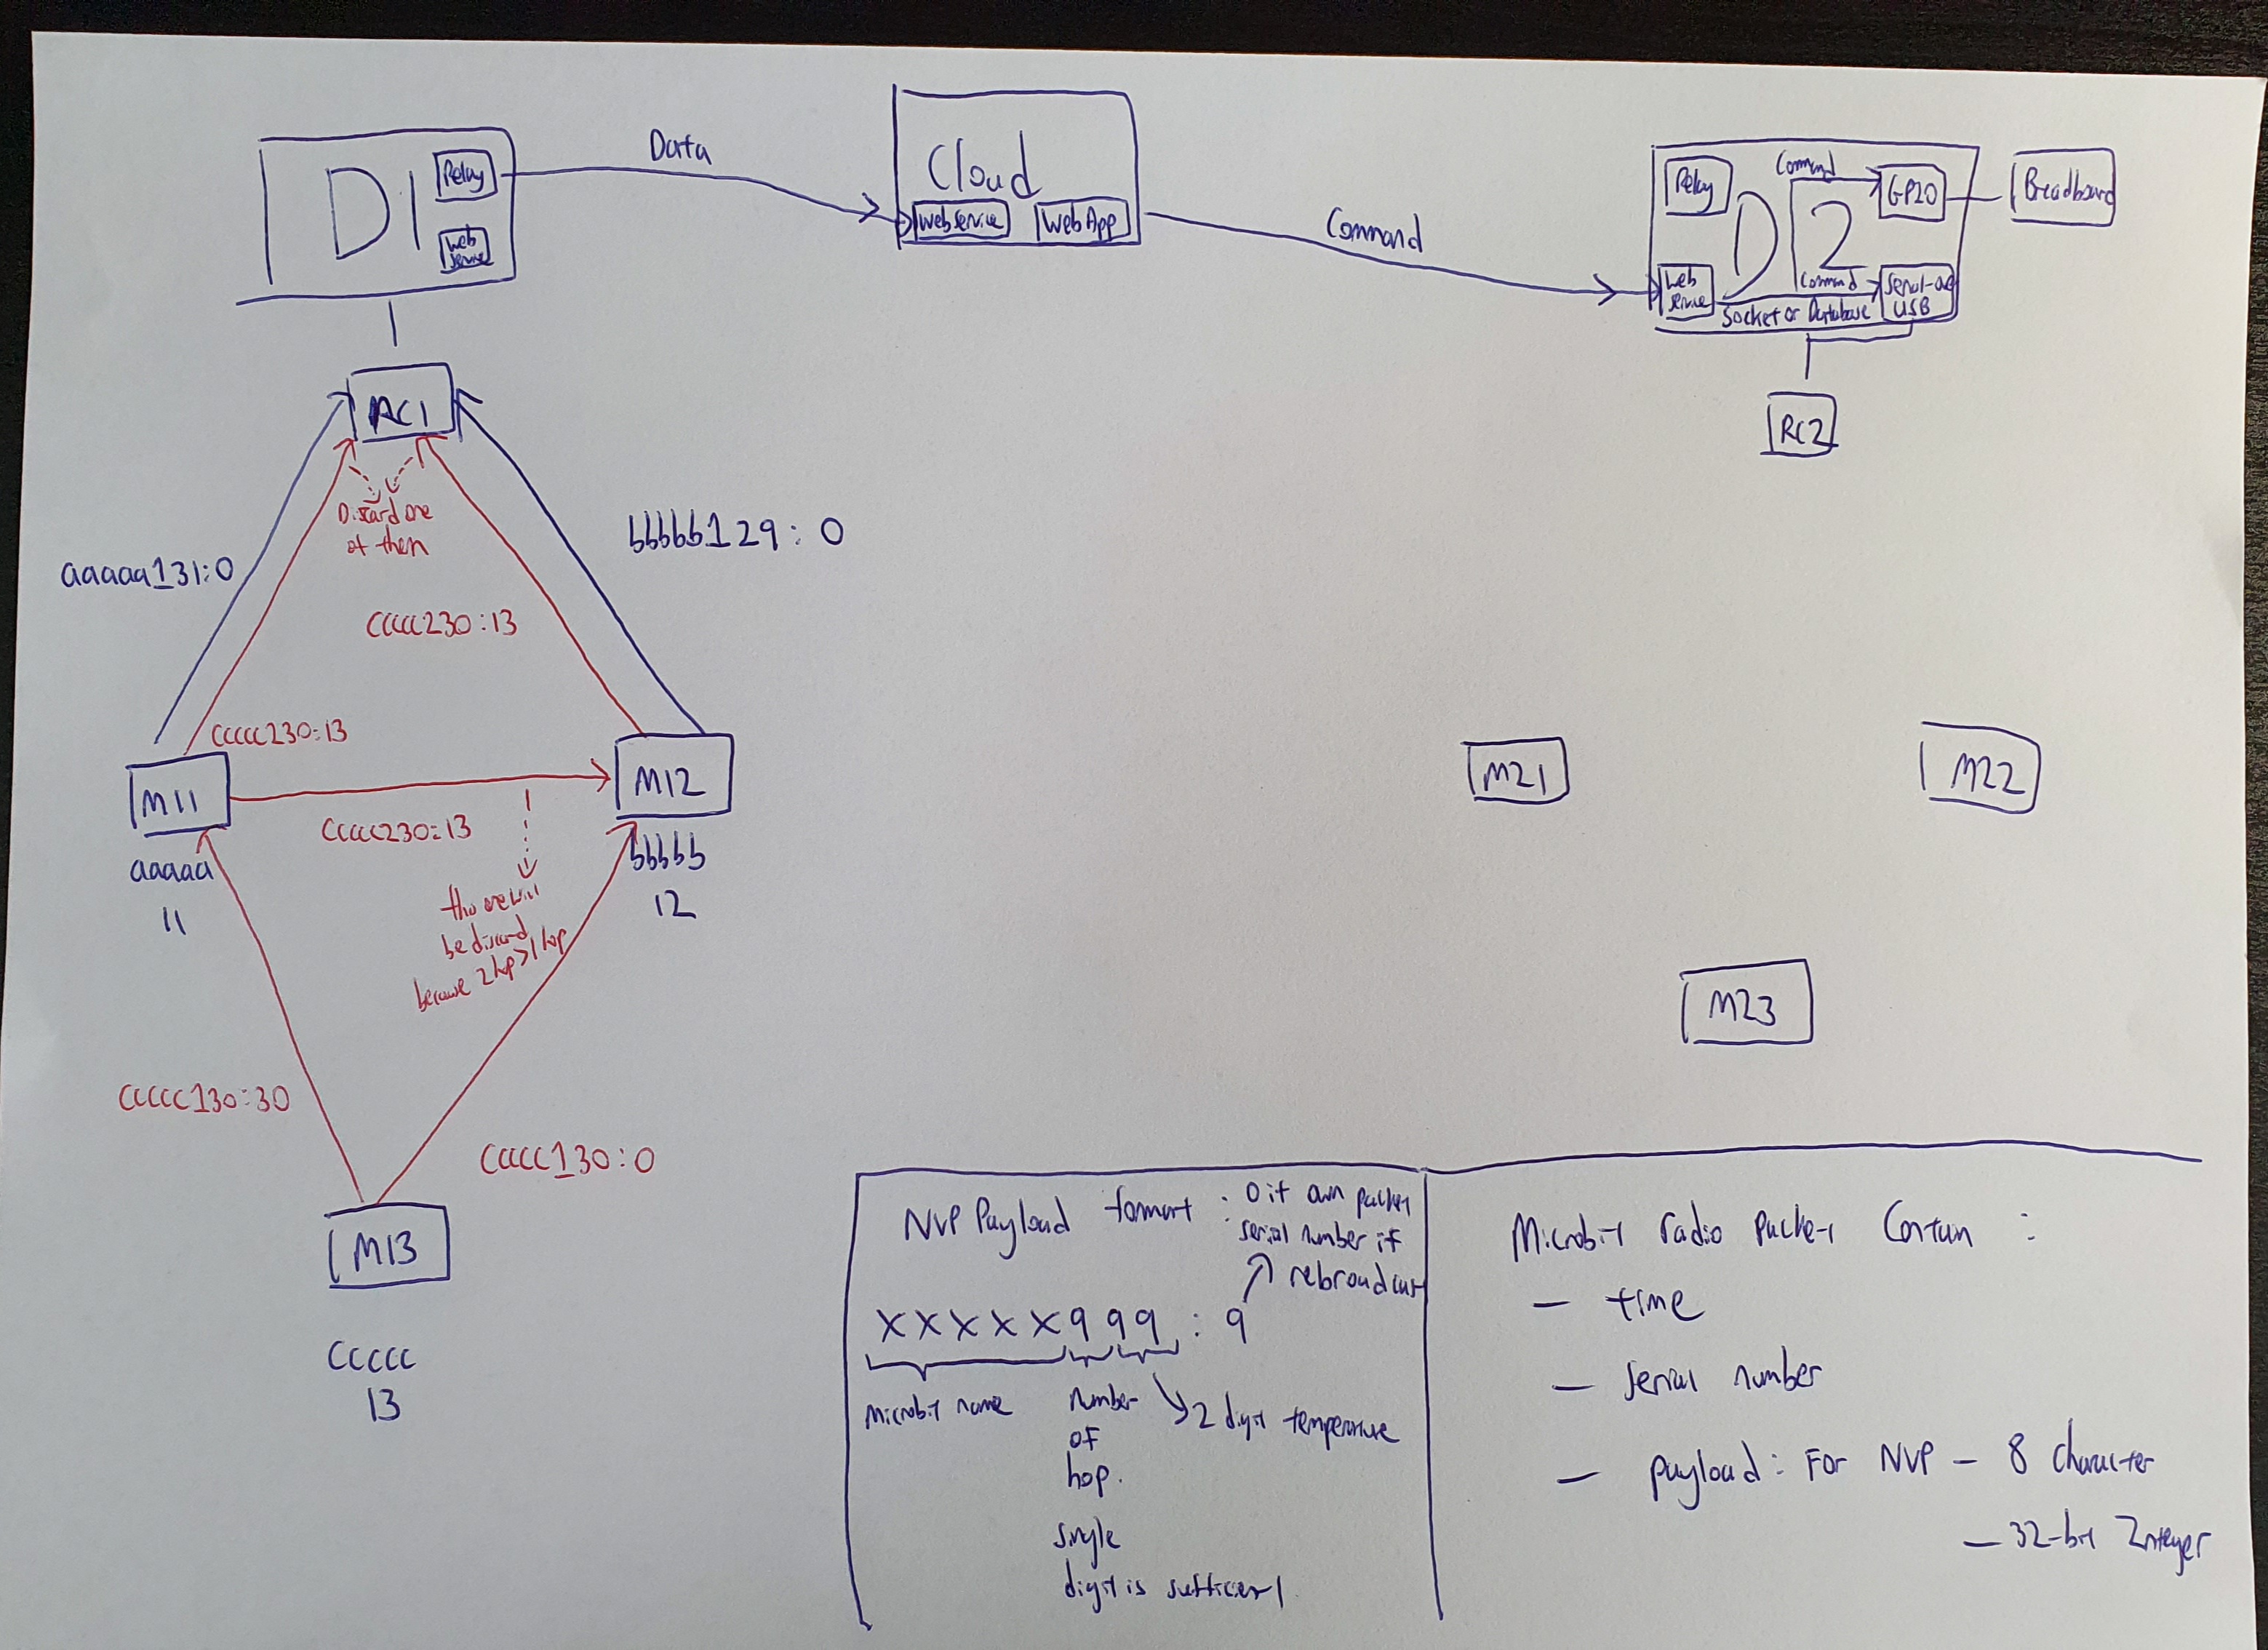 D1
Relay
Web
Service
Data
Cloud
Webservice
WebApp
Command
Relay
D2
Command
GPIO
Breadboard
Web
Service
Command
USB
Socket or Database
RC1
RC2
Discard one
of them
aaaaa131:0
bbbbb129:0
ccccc230:13
ccccc230:13
M11
aaaaa
11
M12
bbbbb
12
ccccc230:13
this one will
be discard
because 2 hop > 1 hop
M21
M22
M23
ccccc130:30
ccccc130:0
M13
ccccc
13
NVP Payload format : 0 if own packet
: serial number if
rebroadcast
XXXXX999:9
Microbit name
Number
of
hop.
Single
digit is sufficient
2 digit temperature
Microbit radio packet contain :
- time
- serial number
- payload: For NVP - 8 character
- 32-bit Integer